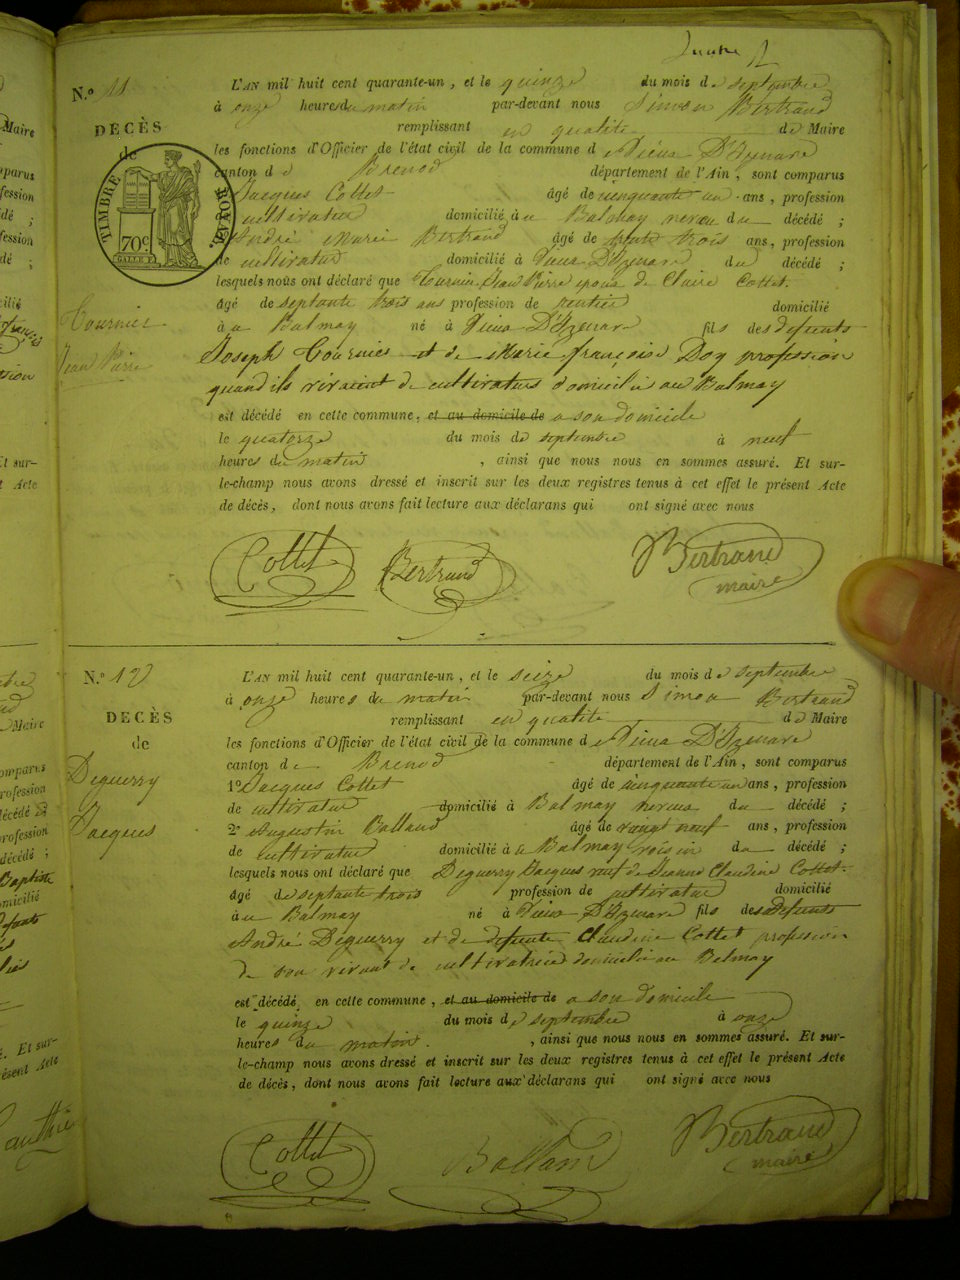 N.º 11
DÉCÈS
de
TIMBRE ROYAL
70 c
Tournier
Jean Pierre
L'AN mil huit cent quarante-un, et le quinze du mois de septembre
à onze heures du matin par-devant nous Simon Bertrand
remplissant en qualité de Maire
les fonctions d'Officier de l'état civil de la commune de Vieux D'Izenave
canton de Brenod département de l'Ain, sont comparus
Jacques Collet âgé de cinquante un ans, profession
de cultivateur domicilié au Balmay neveu du décédé ;
André Marie Bertrand âgé de trente trois ans, profession
de cultivateur domicilié à Vieux D'Izenave du décédé ;
lesquels nous ont déclaré que Tournier Jean Pierre epoux de Claire Cottet.
âgé de septante trois ans profession de rentier domicilié
à au Balmay né à Vieux D'Izenave fils des défunts
Joseph Tournier et de Marie françoise Doy profession
quand ils vivaient de cultivateurs domiciliés au Balmay
est décédé en cette commune, et au domicile de a son domicile
le quatorze du mois de septembre à neuf
heures du matin, ainsi que nous nous en sommes assuré. Et sur-
le-champ nous avons dressé et inscrit sur les deux registres tenus à cet effet le présent Acte
de décès, dont nous avons fait lecture aux déclarans qui ont signé avec nous
Collet Bertrand Bertrand
maire
N.º 12
DÉCÈS
de
Deguerry
Jacques
L'AN mil huit cent quarante-un, et le seize du mois de septembre
à onze heures du matin par-devant nous Simon Bertrand
remplissant en qualité de Maire
les fonctions d'Officier de l'état civil de la commune de Vieux D'Izenave
canton de Brenod département de l'Ain, sont comparus
1º Jacques Collet âgé de cinquante un ans, profession
de cultivateur domicilié à Balmay neveu du décédé ;
2º Augustin Balland âgé de vingt neuf ans, profession
de cultivateur domicilié à au Balmay voisin du décédé ;
lesquels nous ont déclaré que Deguerry Jacques veuf de Jeanne Claudine Cottet.
âgé de septante trois profession de cultivateur domicilié
à au Balmay né à Vieux D'Izenave fils des défunts
André Deguerry et de defunte Claudine Cottet profession
de son vivant de cultivatrice domiciliée au Balmay
est décédé en cette commune, et au domicile de a son domicile
le quinze du mois de septembre à onze
heures du matin., ainsi que nous nous en sommes assuré. Et sur-
le-champ nous avons dressé et inscrit sur les deux registres tenus à cet effet le présent Acte
de décès, dont nous avons fait lecture aux déclarans qui ont signé avec nous
Collet Balland Bertrand
maire